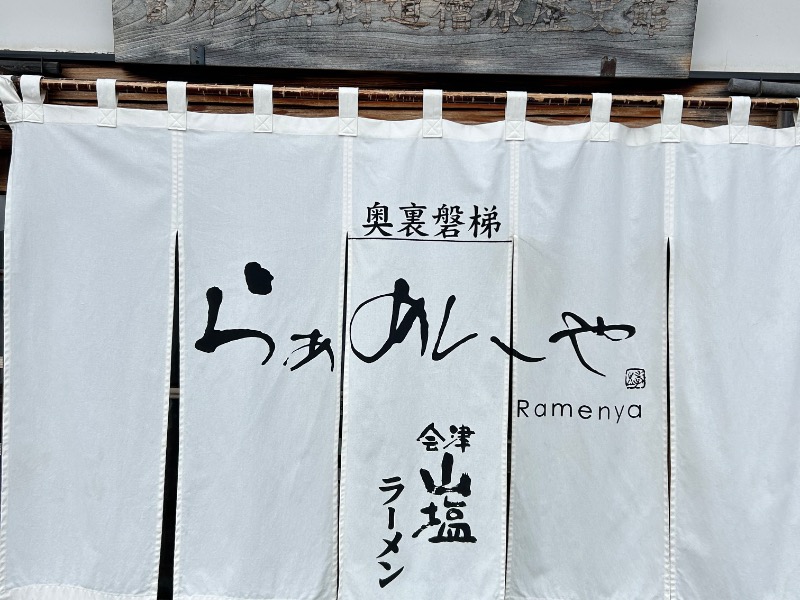 奥裏磐梯
らぁめんや
Ramenya
会津
山塩
ラーメン